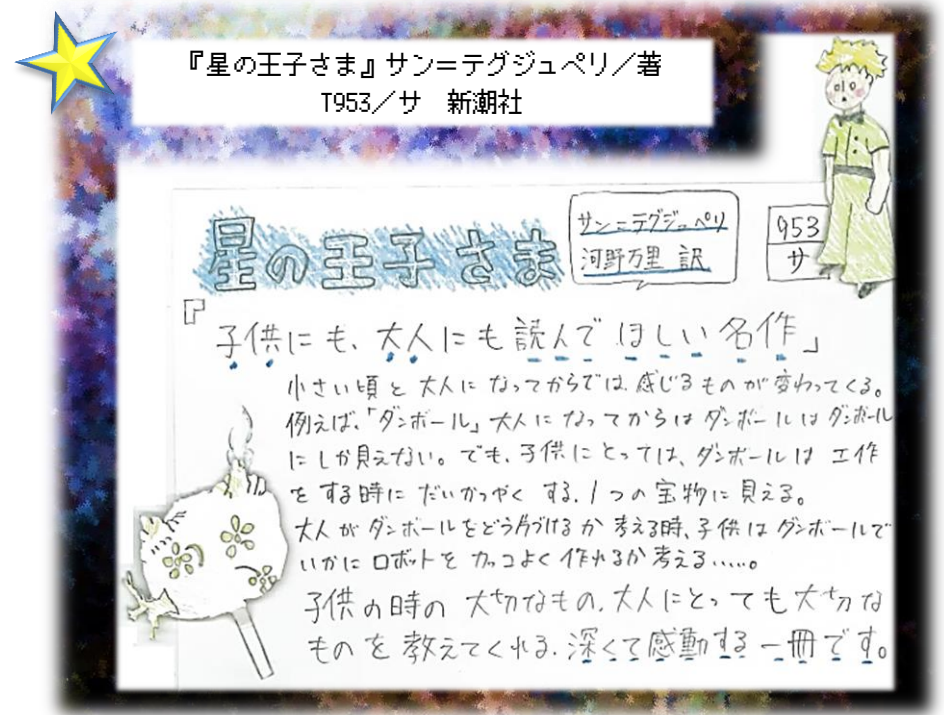 『星の王子さま』サン＝テグジュペリ／著
T953／サ　新潮社
星の王子さま
サン＝テグジュペリ
河野万里 訳
953
サ
『子供にも、大人にも読んでほしい名作」
小さい頃と大人になってからでは、感じるものが変わってくる。
例えば、「ダンボール」大人になってからはダンボールはダンボール
にしか見えない。でも、子供にとっては、ダンボールは工作
をする時にだいかつやくする、1つの宝物に見える。
大人がダンボールをどう片づけるか考える時、子供はダンボールで
いかにロボットをカッコよく作れるか考える……。
子供の時の大切なもの、大人にとっても大切な
ものを教えてくれる、深くて感動する一冊です。